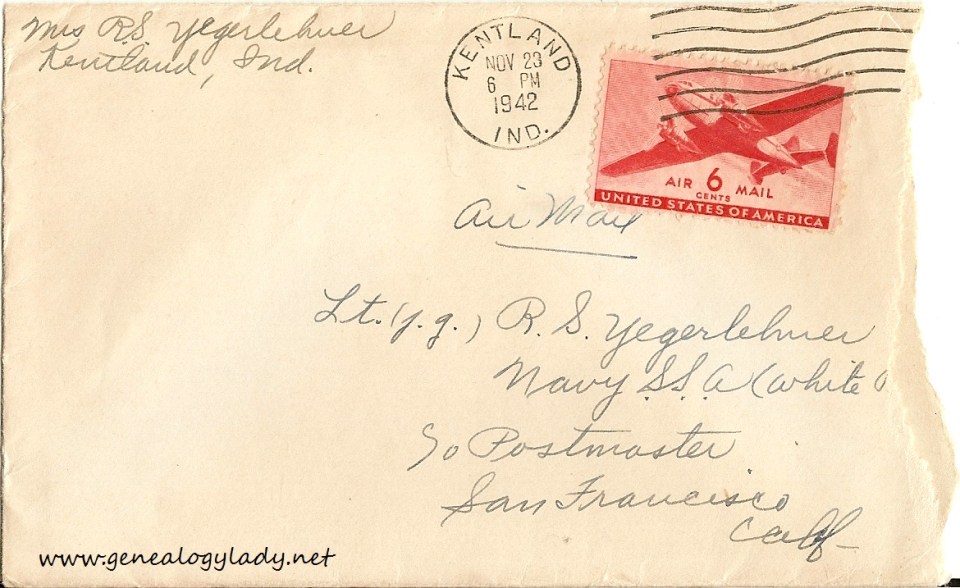 Mrs R.S. Yegerlehner
Kentland, Ind.
KENTLAND
NOV 23
6 PM
1942
IND.
AIR 6 MAIL
CENTS
UNITED STATES OF AMERICA
Air Mail
Lt. (j.g.) R. S. Yegerlehner
Navy S.S.A (White
c/o Postmaster
San Francisco
Calif
www.genealogylady.net